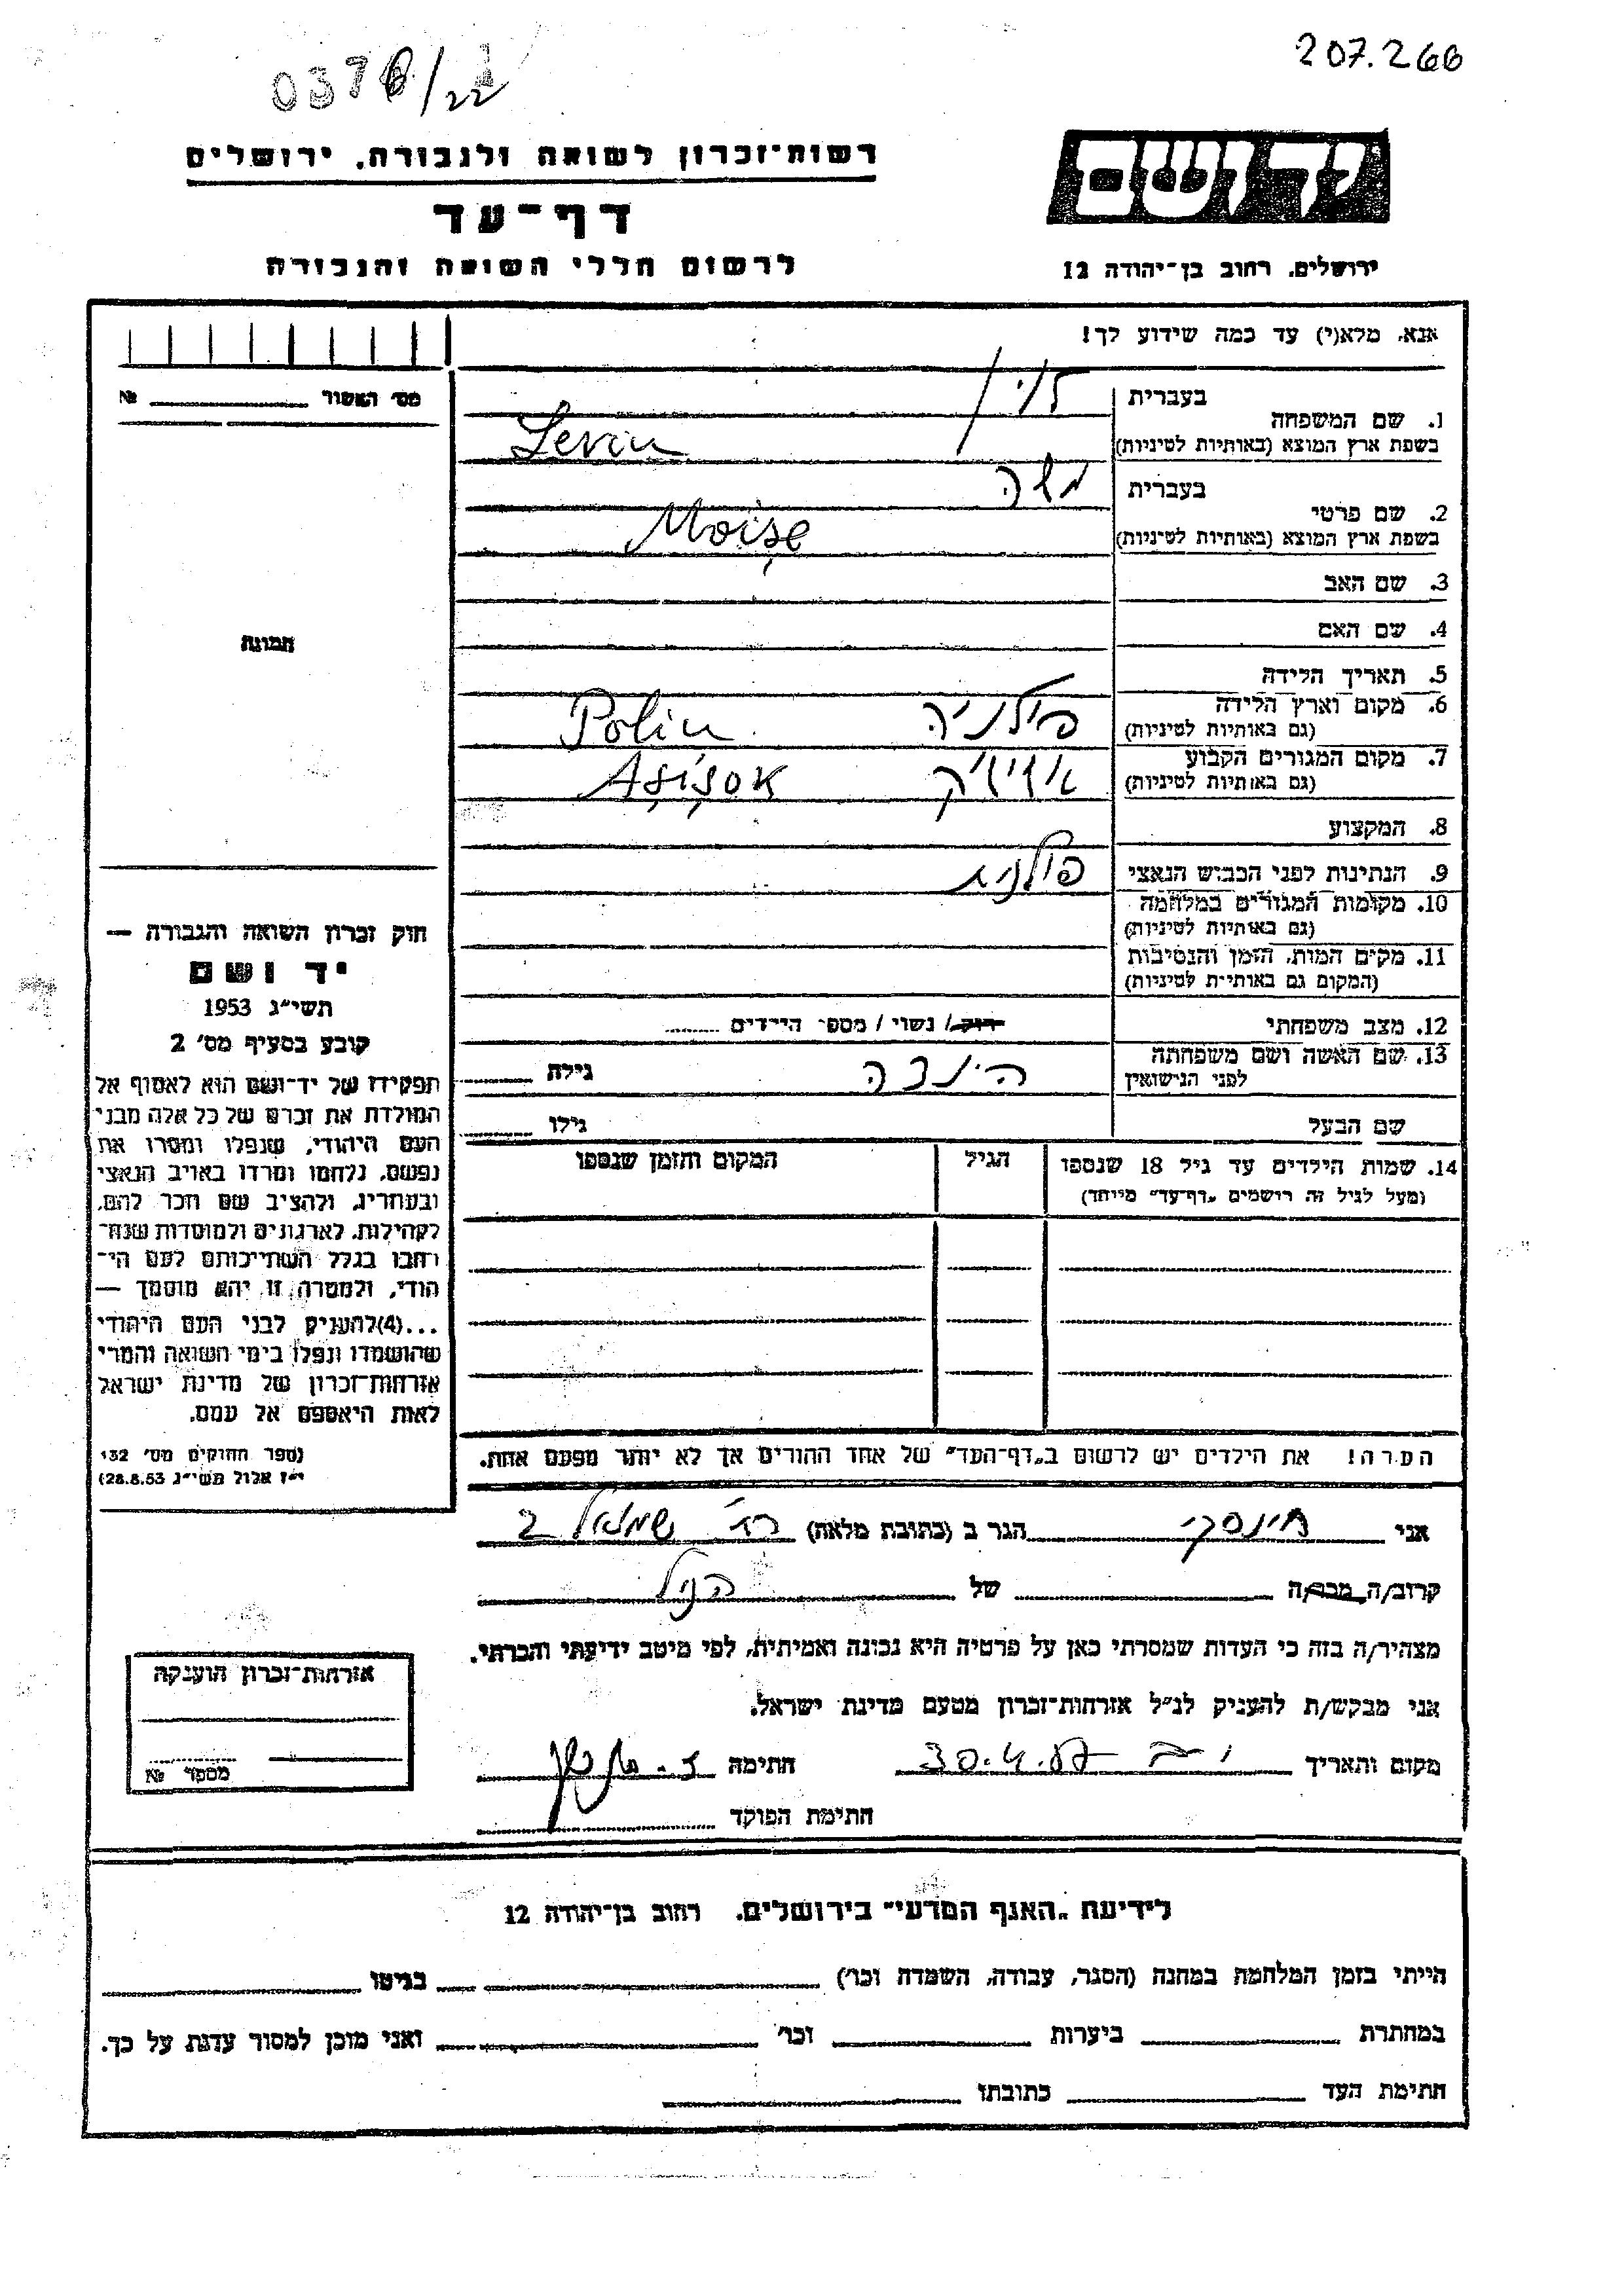 207.266
0378/22
רשות־זכרון לשואה ולגבורה. ירושלים
דף־עד
לרשום חללי השואה והגבורה
יד ושם
ירושלים. רחוב בן־יהודה 12
אנא. מלא(י) עד כמה שידוע לך!
מס' האשור № 
1. שם המשפחה
בעברית לוין
בשפת ארץ המוצא (באותיות לטיניות) Levin
2. שם פרטי
בעברית משה
בשפת ארץ המוצא (באותיות לטיניות) Moişe
3. שם האב
4. שם האם
תמונת
5. תאריך הלידה
6. מקום וארץ הלידה פולניה Polin
(גם באותיות לטיניות)
7. מקום המגורים הקבוע Aşişok
(גם באותיות לטיניות)
8. המקצוע
9. הנתינות לפני הכבוש הנאצי פולנית
10. מקומות המגורים במלחמה
(גם באותיות לטיניות)
11. מקום המות, הזמן והנסיבות
(המקום גם באותיות לטיניות)
12. מצב משפחתי רווק / נשוי / מספר הילדים
13. שם האשה ושם משפחתה הינדה גילה
לפני הנישואין
שם הבעל גילו
14. שמות הילדים עד גיל 18 שנספו הגיל המקום והזמן שנספו
(מעל לגיל זה רושמים „דף־עד" מיוחד)
חוק זכרון השואה והגבורה —
יד ושם
תשי"ג 1953
קובע בסעיף מס' 2
תפקידו של יד־ושם הוא לאסוף אל
המולדת את זכרם של כל אלה מבני
העם היהודי, שנפלו ומסרו את
נפשם, נלחמו ומרדו באויב הנאצי
ובעוזריו, ולהציב שם וזכר להם,
לקהילות, לארגונים ולמוסדות שנח־
רבו בגלל השתייכותם לעם הי־
הודי, ולמטרה זו יהא מוסמך —
...(4)להעניק לבני העם היהודי
שהושמדו ונפלו בימי השואה והמרי
אזרחות־זכרון של מדינת ישראל
לאות היאספם אל עמם.
(ספר החוקים מס' 132
י"ז אלול תשי"ג 28.8.53)
הערה! את הילדים יש לרשום ב„דף־העד" של אחד ההורים אך לא יותר מפעם אחת.
אני הגר ב (כתובת מלאה) שמואל 2
קרוב/ה מכר/ה של הנ"ל
מצהיר/ה בזה כי העדות שמסרתי כאן על פרטיה היא נכונה ואמיתית, לפי מיטב ידיעתי והכרתי.
אני מבקש/ת להעניק לנ"ל אזרחות־זכרון מטעם מדינת ישראל.
מקום ותאריך 30.4.87 חתימה
חתימת הפוקד
אזרחות־זכרון הוענקה
מספר №
לידיעת „האגף המדעי" בירושלים. רחוב בן־יהודה 12
הייתי בזמן המלחמה במחנה (הסגר, עבודה, השמדה וכו') בגיטו
במחתרת ביערות וכו' ואני מוכן למסור עדות על כך.
חתימת העד כתובתו